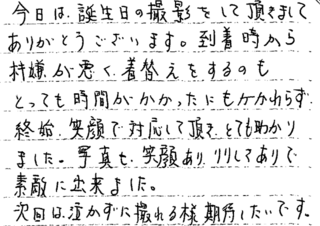 今日は、誕生日の撮影をして頂きまして
ありがとうございます。到着時から
村嫌が悪く、着替えをするのも
とっても時間がかかったにもかかわらず
終始、笑顔で対応して頂き、とても助かり
ました。写真も、笑顔あり、りりしてありで
素敵に出来ました。
次回は、泣かずに撮れる様、期待したいです。